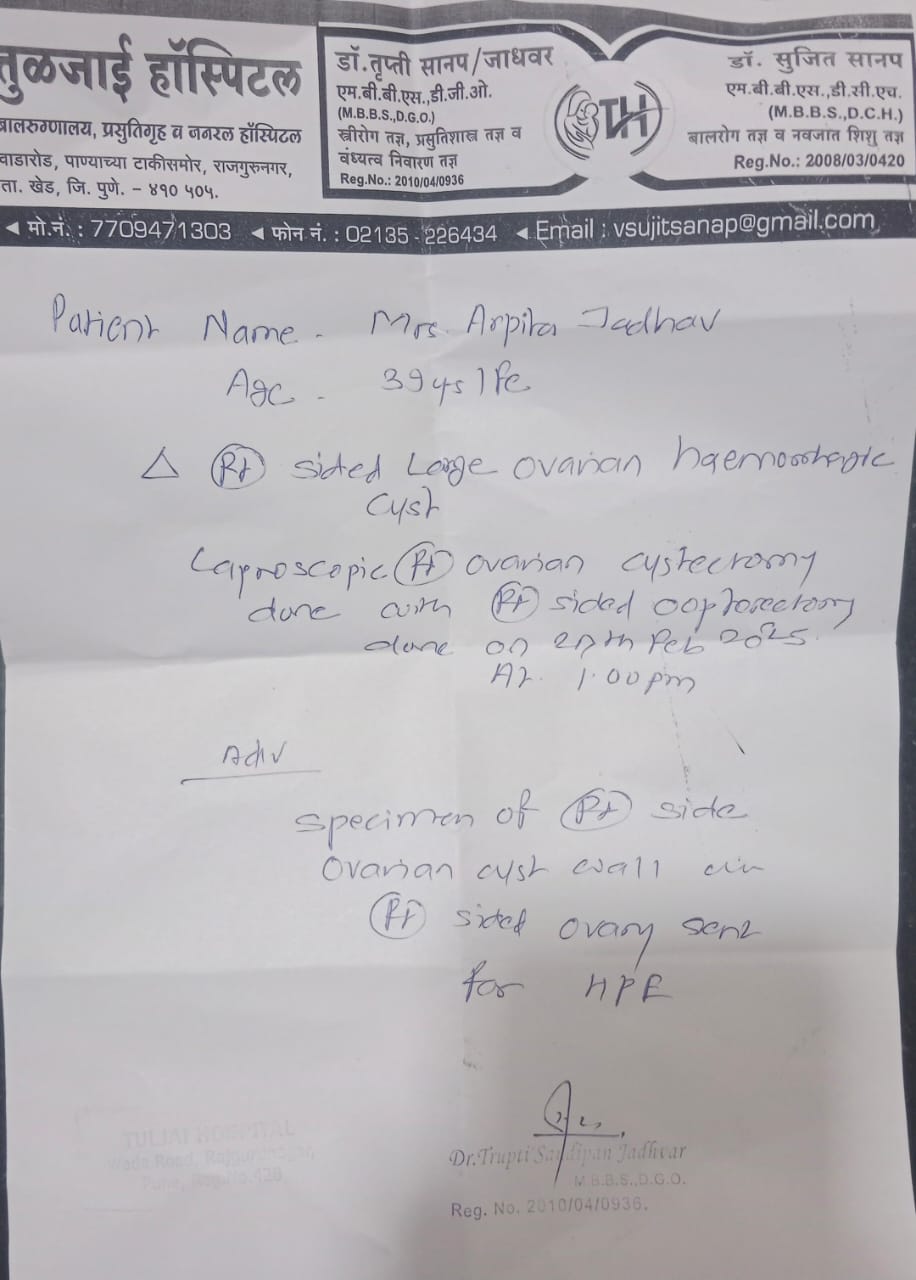 तुळजाई हॉस्पिटल
बालरुग्णालय, प्रसुतिगृह व जनरल हॉस्पिटल
वाडारोड, पाण्याच्या टाकीसमोर, राजगुरुनगर,
ता. खेड, जि. पुणे. - ४१० ५०५.
डॉ. तृप्ती सानप/जाधवर
एम.बी.बी.एस.,डी.जी.ओ.
(M.B.B.S.,D.G.O.)
स्त्रीरोग तज्ञ, प्रसुतिशास्त्र तज्ञ व
वंध्यत्व निवारण तज्ञ
Reg.No.: 2010/04/0936
TH
डॉ. सुजित सानप
एम.बी.बी.एस.,डी.सी.एच.
(M.B.B.S.,D.C.H.)
बालरोग तज्ञ व नवजात शिशु तज्ञ
Reg.No.: 2008/03/0420
मो.नं. : 7709471303 फोन नं. : 02135 - 226434 Email : vsujitsanap@gmail.com
Patient Name - Mrs. Arpita Jadhav
Age - 39 ys / Fe
△ Rt sided Large ovarian haemorrhagic
cyst
Laproscopic Rt ovarian cystectomy
done with Rt sided oophorectomy
done on 27th Feb 2025.
At. 1.00pm
Adv
specimen of Rt side
ovarian cyst wall
Rt sided ovary sent
for HPE
TULJAI HOSPITAL
Wada Road, Rajgurunagar,
Pune, Reg.No.428
Dr.Trupti Sandipan Jadhvar
M.B.B.S.,D.G.O.
Reg. No. 2010/04/0936.